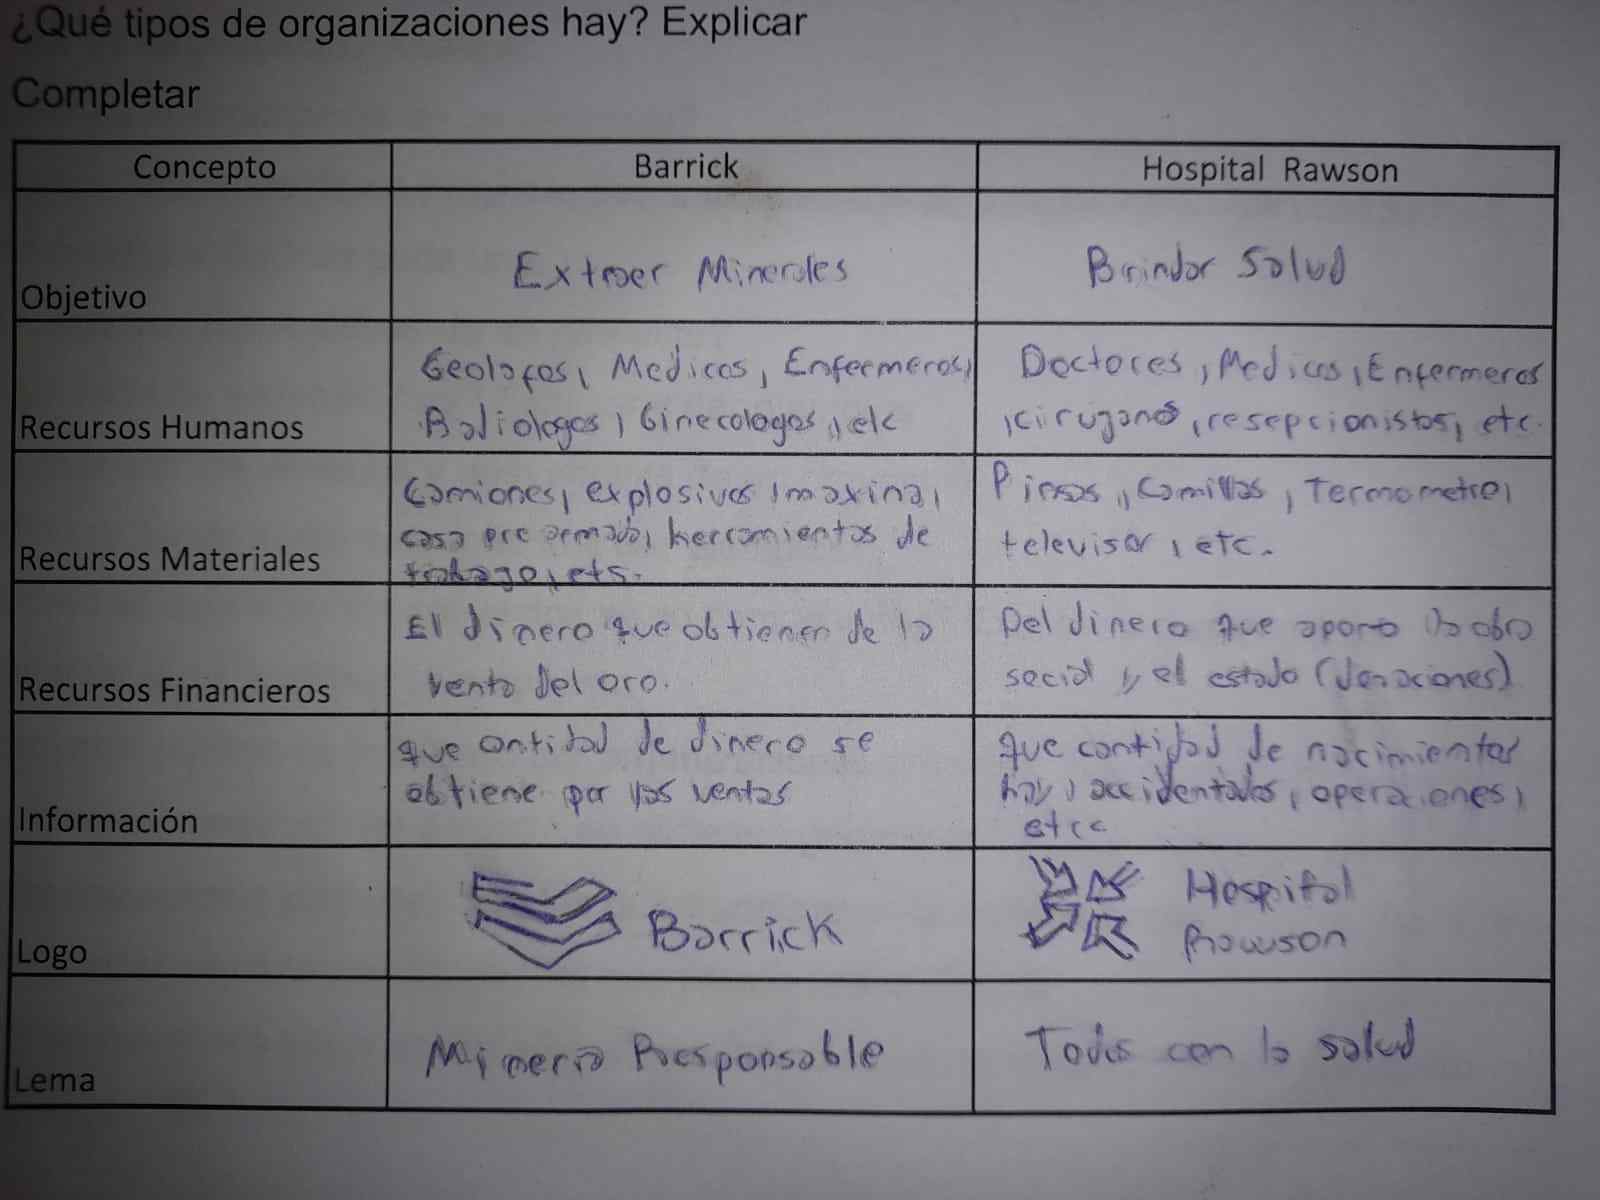 ¿Qué tipos de organizaciones hay? Explicar
Completar
Concepto
Barrick
Hospital Rawson
Objetivo
Extraer Minerales
Brindar Salud
Recursos Humanos
Geologos, Medicos, Enfermeros,
Radiologos, Ginecologos,, etc
Doctores, Medicos, Enfermeros
, cirujano, resepcionistas, etc.
Recursos Materiales
Camiones, explosivos, maxina,
casa pre armada, herramientas de
trabago,, ets.
Pinsas,, Camillas, Termometro,
televisor, etc.
Recursos Financieros
El dinero que obtienen de la
venta del oro.
Del dinero que aporta la obra
social y el estado (donaciones)
Información
que antidad de dinero se
obtiene por las ventas
que cantidad de nacimientos
hay, accidentados, operaciones,
etcc
Logo
Barrick
Hospital
Rawson
Lema
Mineria Responsable
Todos con la salud